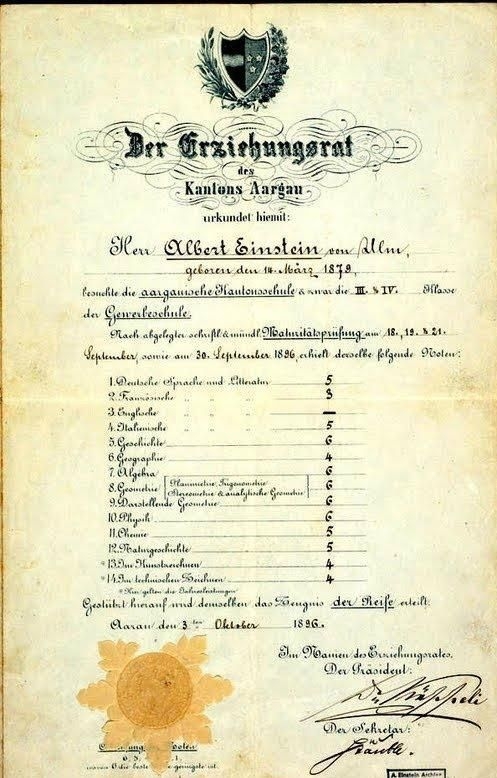 Der Erziehungsrat
des
Kantons Aargau
urkundet hiemit:
Herr Albert Einstein von Ulm,
geboren den 14. März 1879,
besuchte die aargauische Kantonsschule & zwar die III. & IV. Klasse
der Gewerbeschule.
Nach abgelegter schriftl. & mündl. Maturitätsprüfung am 18., 19. & 21.
September, sowie am 30. September 1896, erhielt derselbe folgende Noten:
1. Deutsche Sprache und Litteratur 5
2. Französische " " " 3
3. Englische " " " —
4. Italienische " " " 5
5. Geschichte 6
6. Geographie 4
7. Algebra 6
8. Geometrie [Planimetrie, Trigonometrie 6
Stereometrie & analytische Geometrie]
9. Darstellende Geometrie 6
10. Physik 6
11. Chemie 5
12. Naturgeschichte 5
*13. Im Kunstzeichnen 4
*14. Im technischen Zeichnen 4
*Hier gelten die Jahresleistungen
Gestützt hierauf wird demselben das Zeugnis der Reife erteilt.
Aarau den 3ten Oktober 1896.
Im Namen des Erziehungsrates,
Der Präsident:
Der Sekretär:
Noten
die beste geringste ist.
A. Einstein Archive